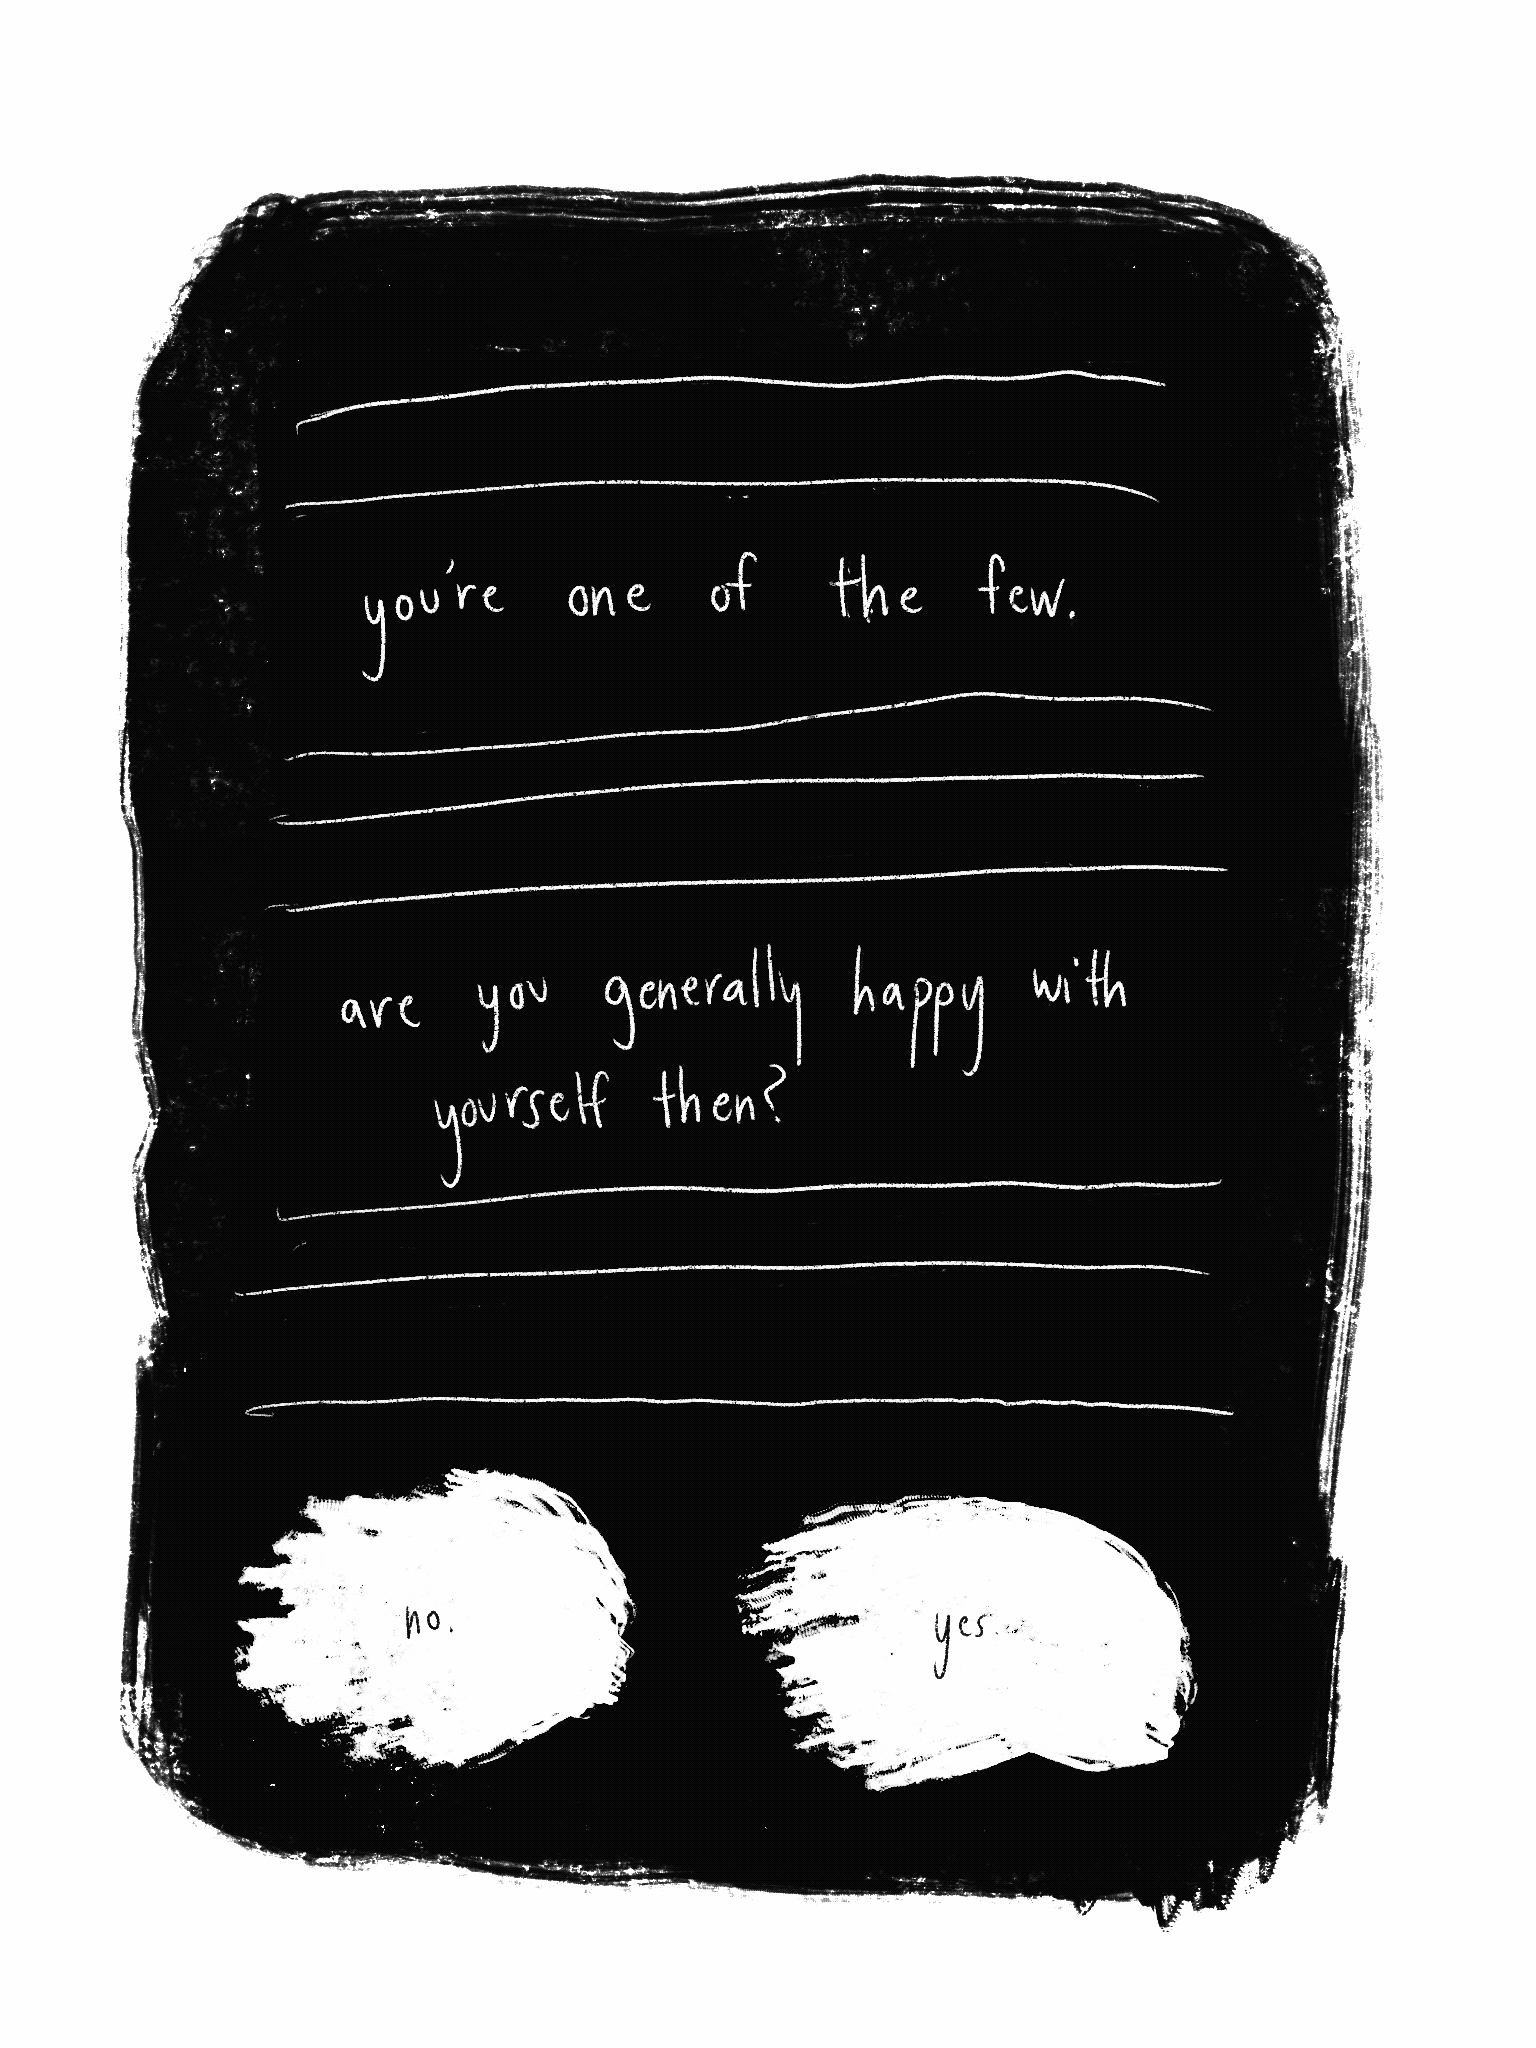 you're one of the few.
are you generally happy with
yourself then?
no.
yes.